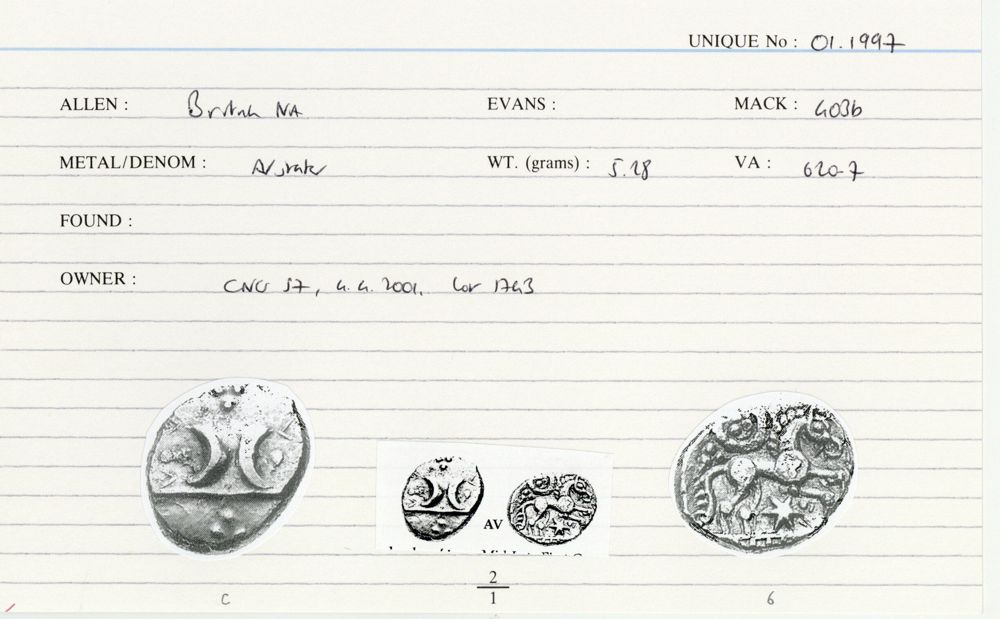 UNIQUE No : 01.1997
ALLEN : British NA EVANS : MACK : 403b
METAL/DENOM : AV stater WT. (grams) : 5.28 VA : 620-7
FOUND :
OWNER : CNG 57, 4.4.2001, lot 1743
AV
2
1
C 6